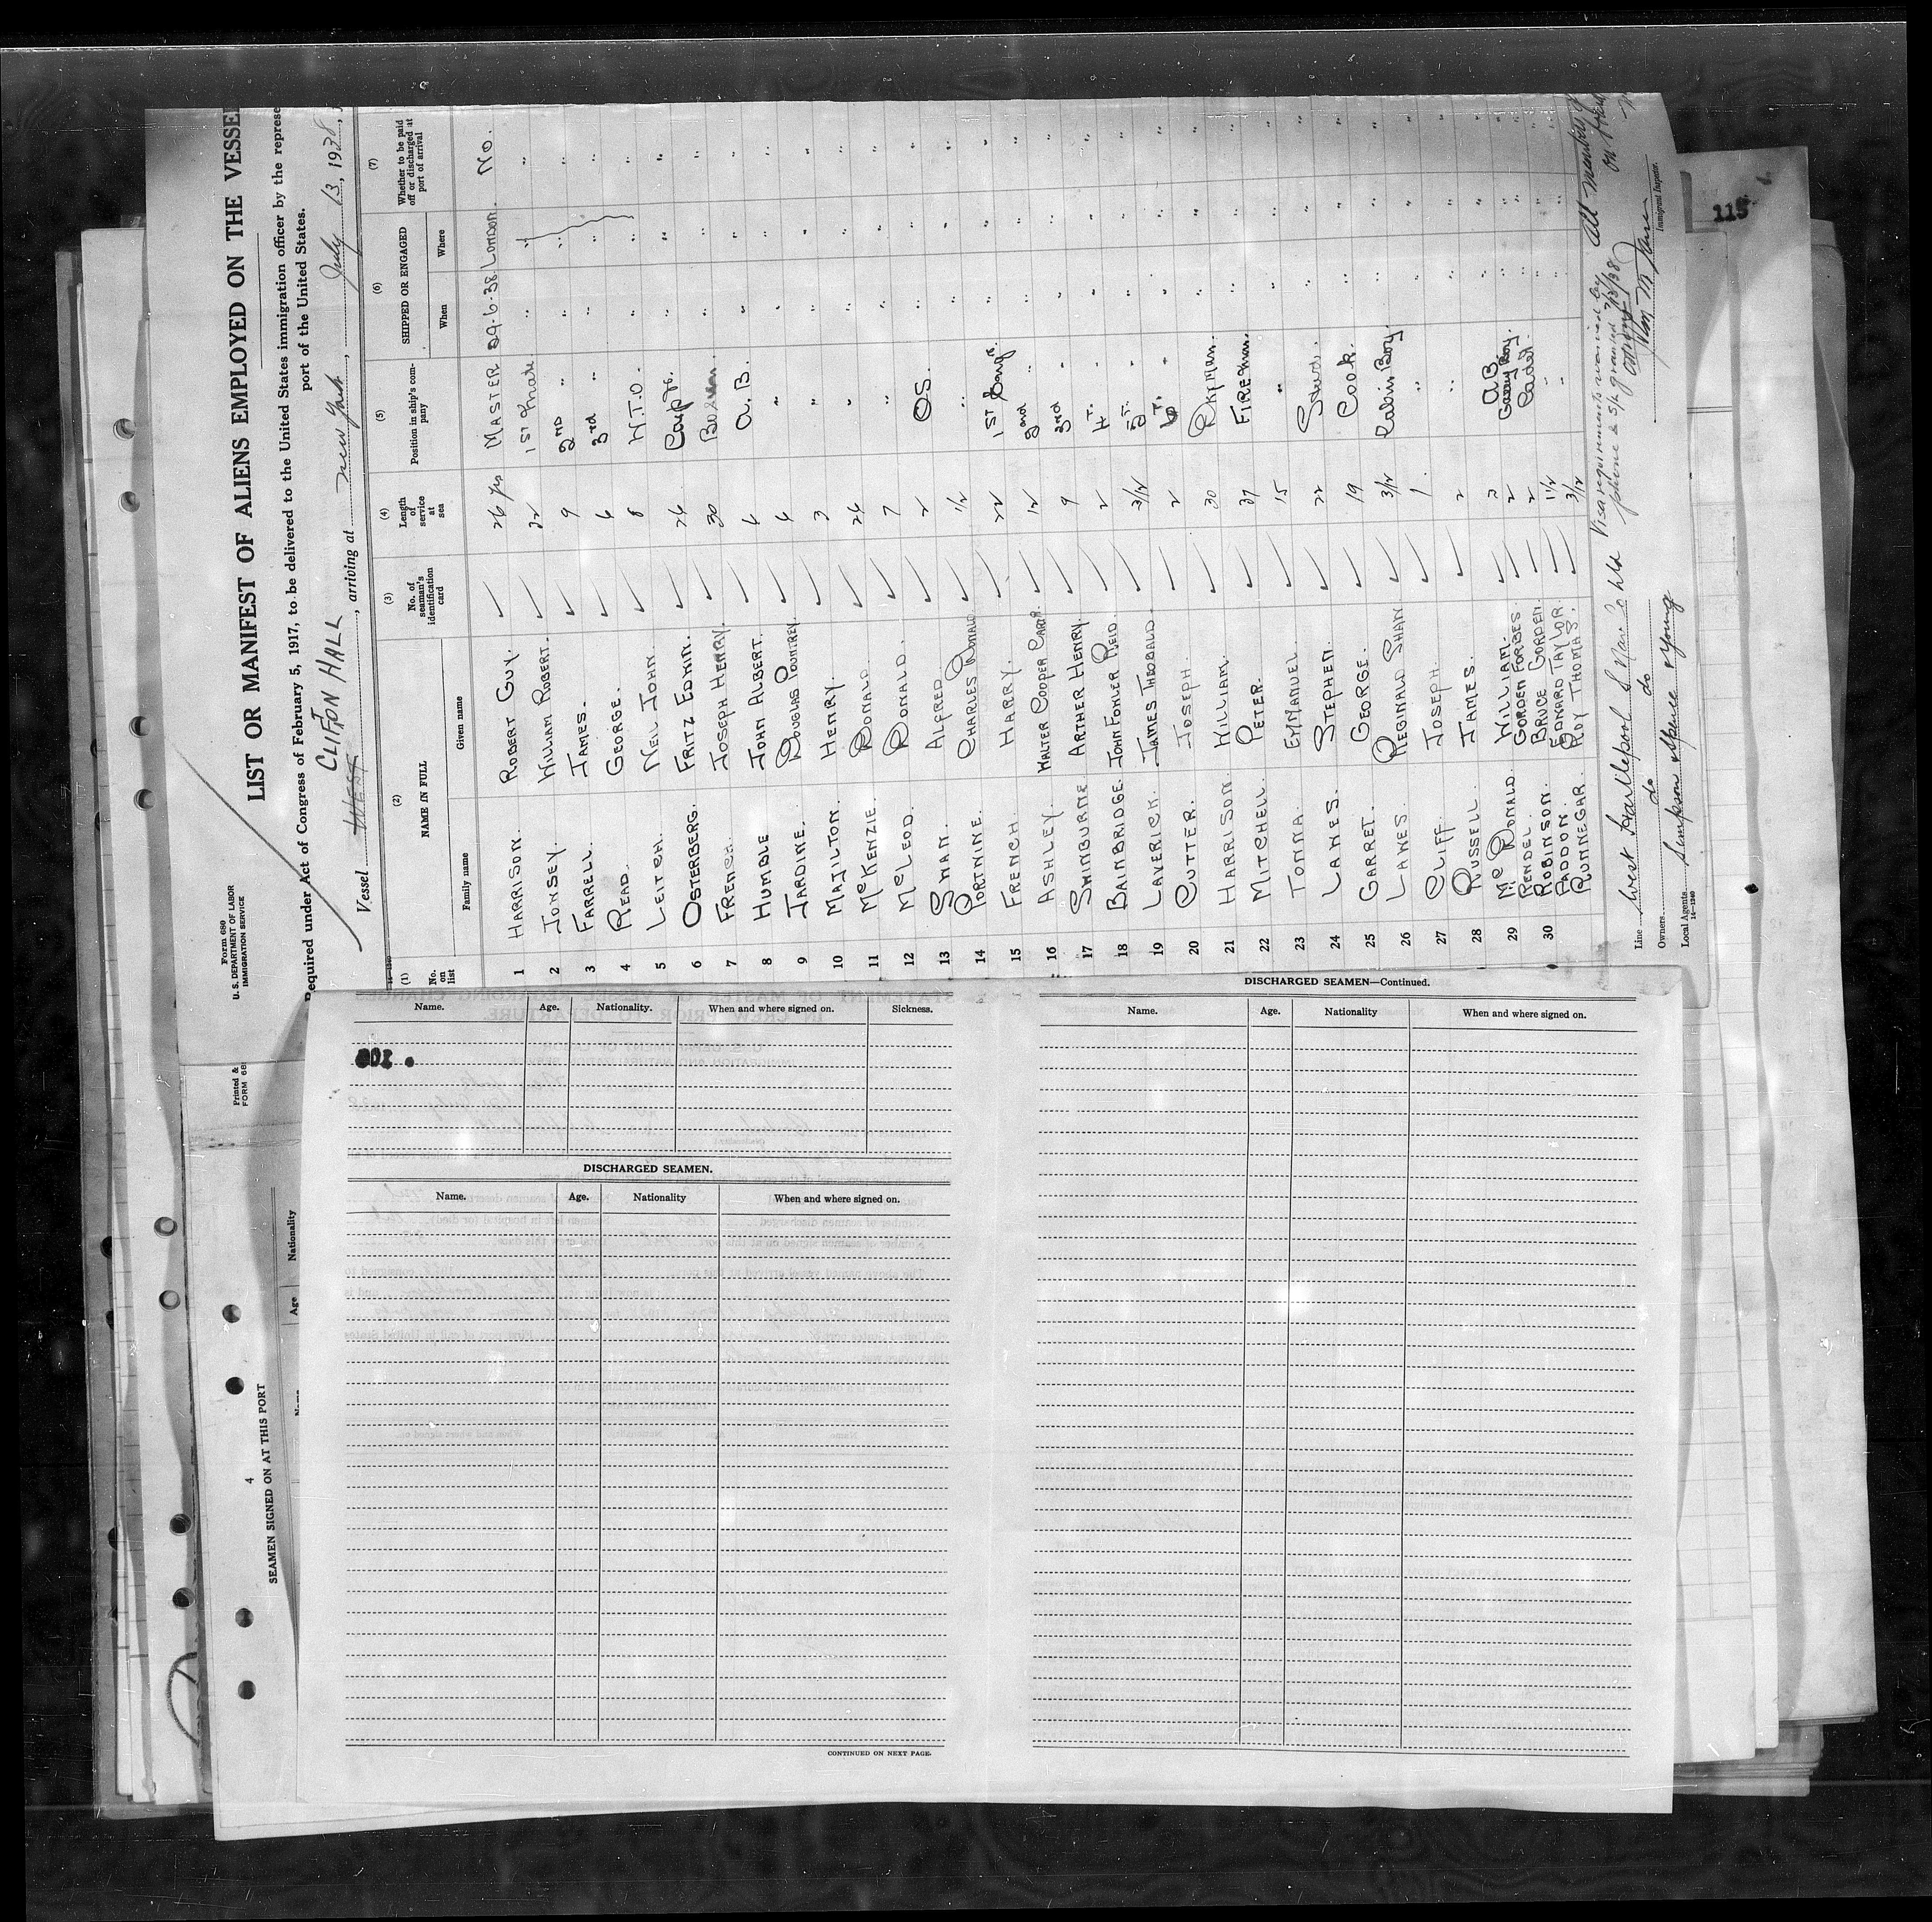 Form 680
U. S. DEPARTMENT OF LABOR
IMMIGRATION SERVICE
LIST OR MANIFEST OF ALIENS EMPLOYED ON THE VESSEL
Required under Act of Congress of February 5, 1917, to be delivered to the United States immigration officer by the represe
port of the United States.
Vessel CLIFTON HALL, arriving at New York, July 13, 1938,
(1) (2) (3) (4) (5) (6) (7)
No. on list NAME IN FULL No. of seaman's identification card Length of service at sea Position in ship's company SHIPPED OR ENGAGED Whether to be paid off or discharged at port of arrival
Family name Given name When Where
1 HARRISON. ROBERT GUY. 26 yrs MASTER 29-6-38 LONDON. NO.
2 JONSEY. WILLIAM ROBERT. 32 1ST Mate " " "
3 FARRELL. JAMES. 9 2ND " " " "
4 READ. GEORGE. 6 3rd " " " "
5 LEITCH. NEIL JOHN. 8 W.T.O. " " "
6 OSTERBERG. FRITZ EDWIN. 26 Carptr. " " "
7 FRENCH. JOSEPH HENRY. 30 " " "
8 HUMBLE JOHN ALBERT. 4 A.B. " " "
9 JARDINE. DOUGLAS 4 " " " "
10 MAJILTON. HENRY. 3 " " " "
11 McKENZIE. DONALD. 24 " " " "
12 McLEOD. DONALD. 7 " " " "
13 SWAN. ALFRED. 2 O.S. " " "
14 PORTNINE. CHARLES RONALD 1/2 " " " "
15 FRENCH. HARRY. 22 1ST Eng'r. " " "
16 ASHLEY. WALTER COOPER 12 2nd " " " "
17 SWINBURNE ARTHER HENRY. 9 3rd " " " "
18 BAINBRIDGE. JOHN FOWLER REID. 2 4T. " " " "
19 LAVERICK. JAMES THEOBALD. 3/12 5T. " " " "
20 CUTTER. JOSEPH. 2 6T. " " " "
21 HARRISON WILLIAM. 30 DKYMAN. " " "
22 MITCHELL. PETER. 37 FIREMAN. " " "
23 TONNA. EMMANUEL. 15 " " " "
24 LAWES. STEPHEN. 22 Stwd. " " "
25 GARRET. GEORGE. 19 Cook. " " "
26 LAWES. REGINALD SHAN 3/12 Cabin Boy. " " "
27 CLIFF. JOSEPH. 1. " " " "
28 RUSSELL. JAMES. 2 " " " "
29 Mc DONALD. WILLIAM. 2 A.B. " " "
RENDEL. GORDEN FORBES. 2 Galley Boy. " " "
30 ROBINSON. BRUCE GORDEN. 2 Cadet. " " "
PADDON. EDWARD TAYLOR. 1 1/2 " " " "
RUNNEGAR. ROY THOMAS. 3/12 " " " "
Line West Hartlepool S Nav Co Ltd
Owners do do
Local Agents Simpson Spence & Young
14—1240
Visa requirements waived by
phone & S/L granted 7/12/38
All members of
on
Immigrant Inspector.
115
Printed &
FORM 68
4
SEAMEN SIGNED ON AT THIS PORT
Name Age Nationality
Name. Age. Nationality. When and where signed on. Sickness.
DISCHARGED SEAMEN.
Name. Age. Nationality When and where signed on.
CONTINUED ON NEXT PAGE.
DISCHARGED SEAMEN—Continued.
Name. Age. Nationality When and where signed on.